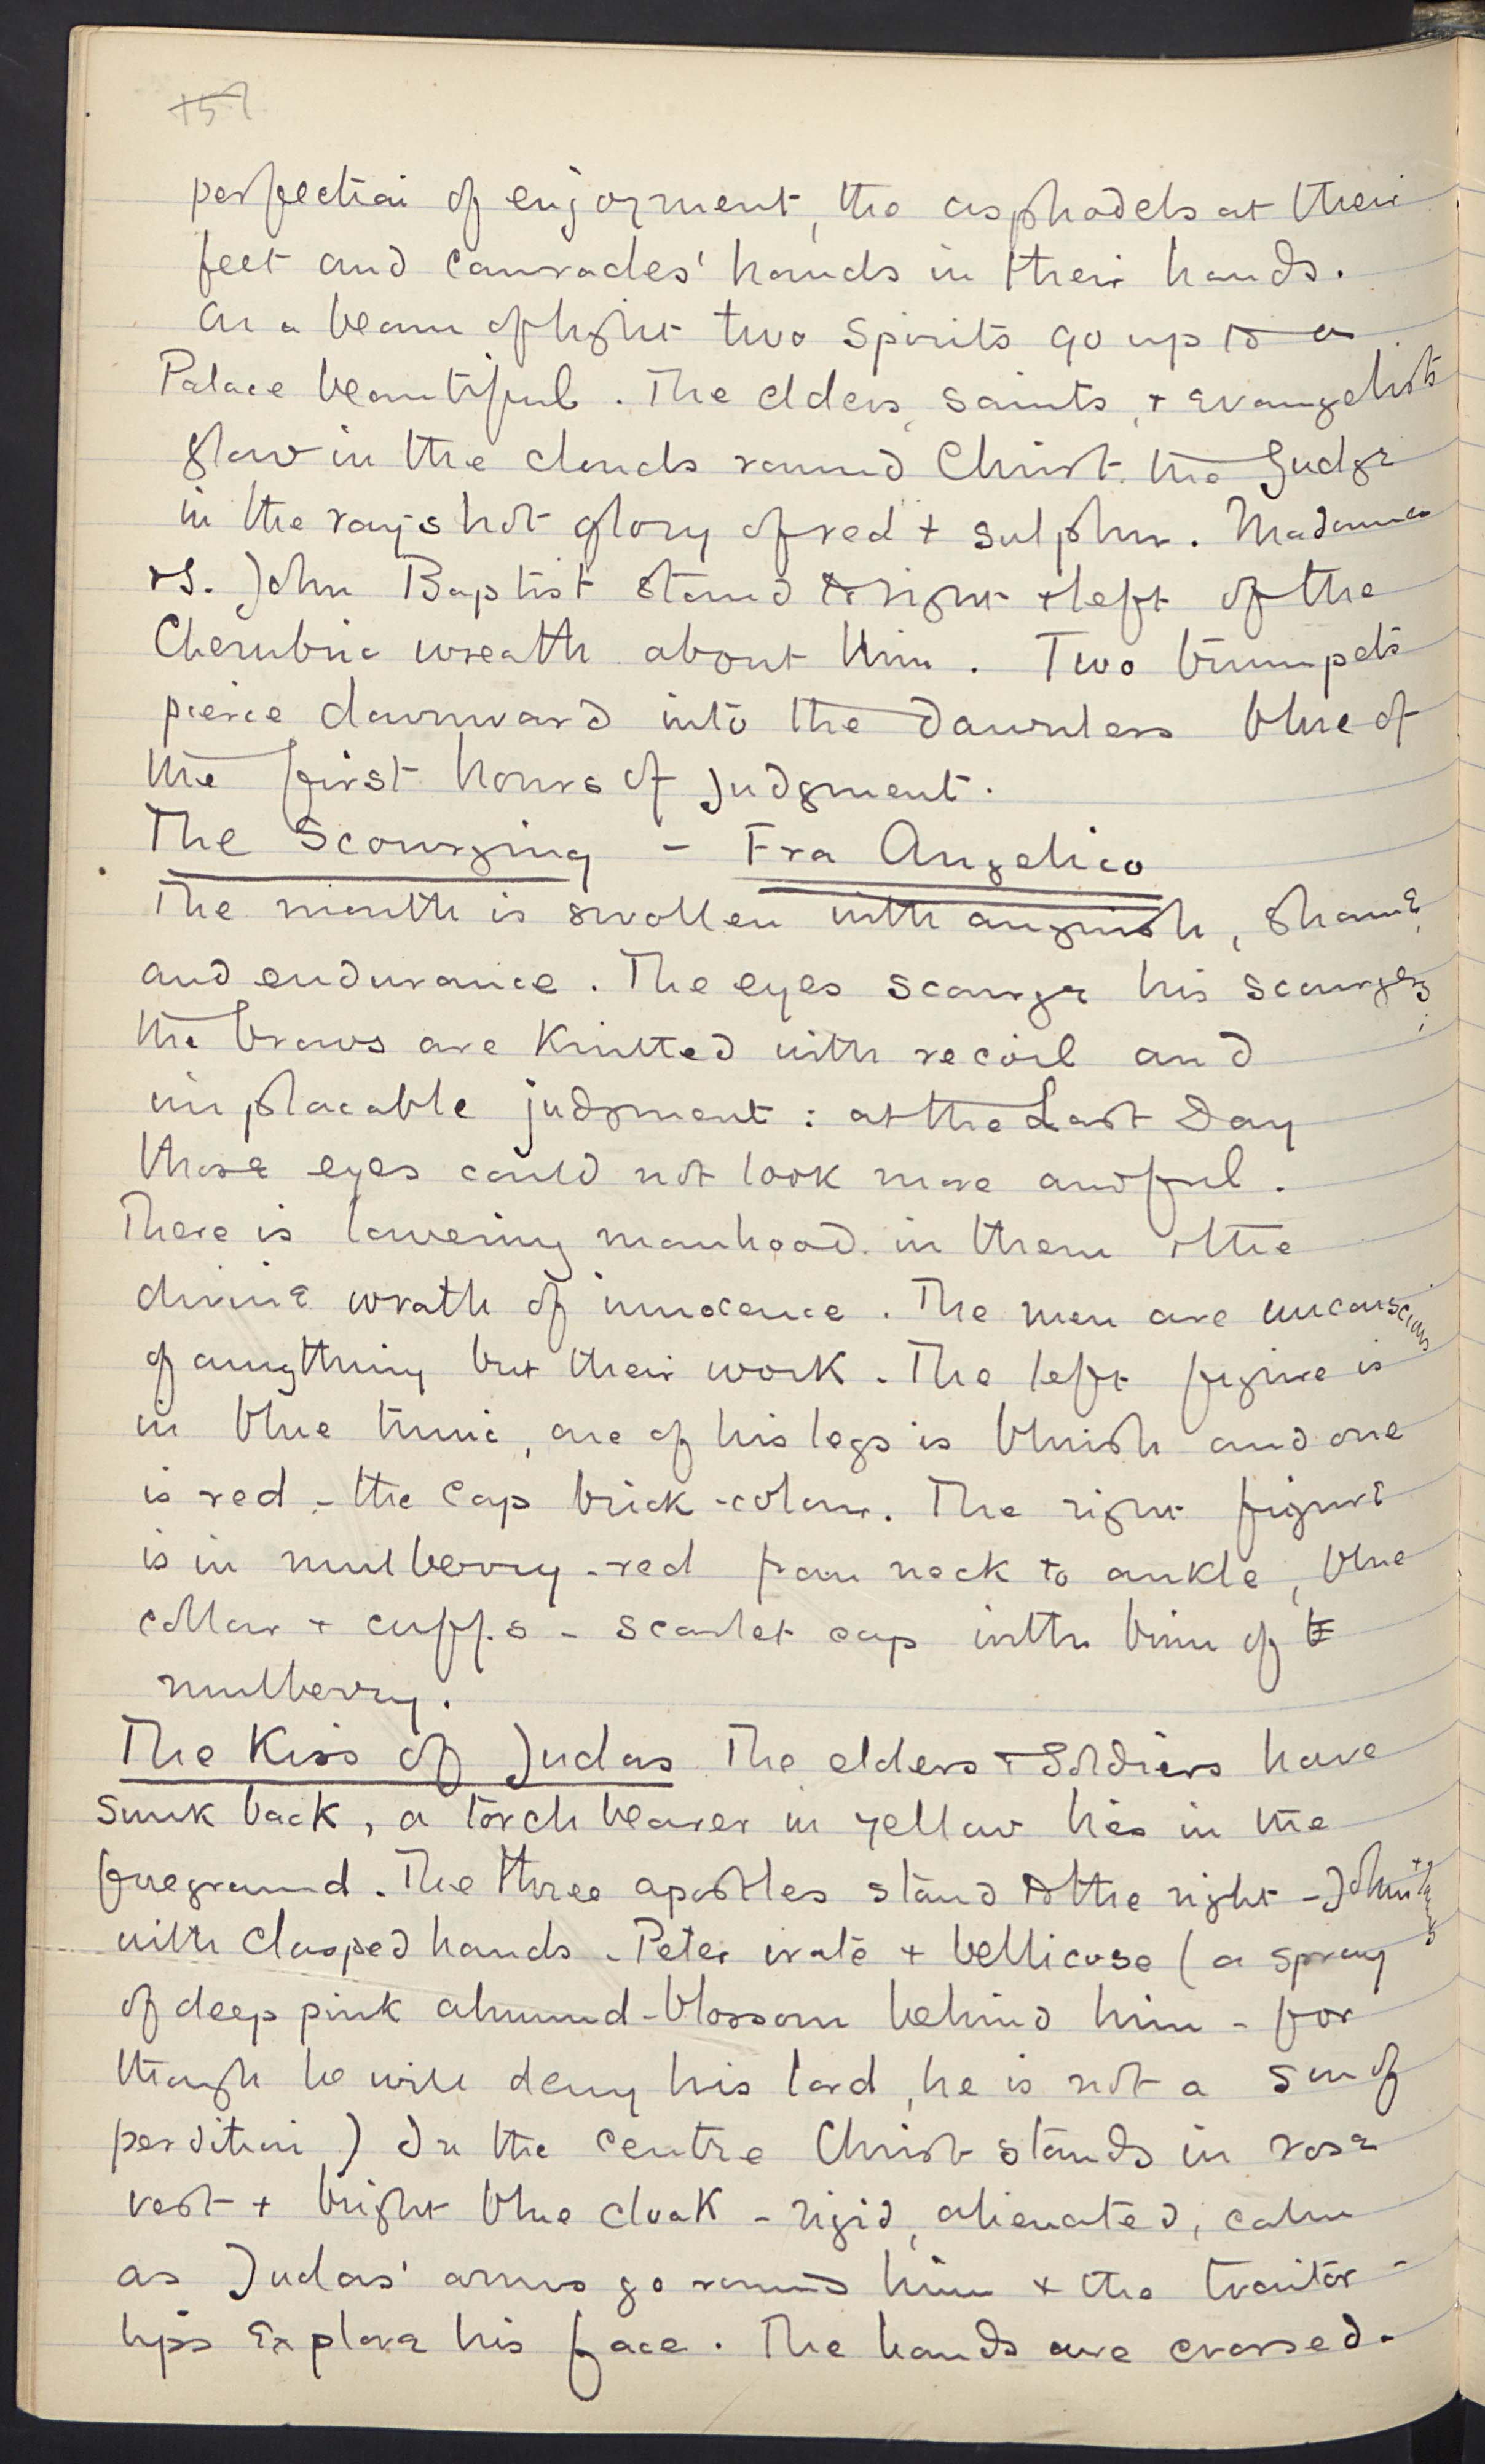 157
perfection of enjoyment, the asphodels at their
feet and comrades' hands in their hands.
On a beam of light two spirits go up to a
Palace beautiful. The elders, saints, + evangelists
glow in the clouds round Christ the Judge
in the rays hot glory of red + sulphur. Madonna
+ S. John Baptist stand to right + left of the
Cherubic wreath about Him. Two trumpets
pierce downward into the dawnless blue of
the first hours of judgment.
The Scourging - Fra Angelico
The mouth is swollen with anguish, shame,
and endurance. The eyes scourge his scourgers;
the brows are knitted with recoil and
implacable judgment: at the Last Day
those eyes could not look more awful.
There is lowering manhood in them + the
divine wrath of innocence. The men are unconscious
of anything but their work. The left figure is
in blue tunic, one of his legs is bluish and one
is red - the cap brick-colour. The right figure
is in mulberry-red from neck to ankle, blue
collar + cuffs - scarlet cap with brim of
mulberry.
The Kiss of Judas The elders + soldiers have
sunk back, a torch bearer in yellow lies in the
foreground. The three apostles stand to the right - John + James
with clasped hands - Peter irate + bellicose (a spray
of deep pink almond-blossom behind him - for
though he will deny his lord, he is not a son of
perdition) In the centre Christ stands in rose
vest + bright blue cloak - rigid, alienated, calm
as Judas' arms go round him + the traitor-
lips explore his face. The hands are crossed -